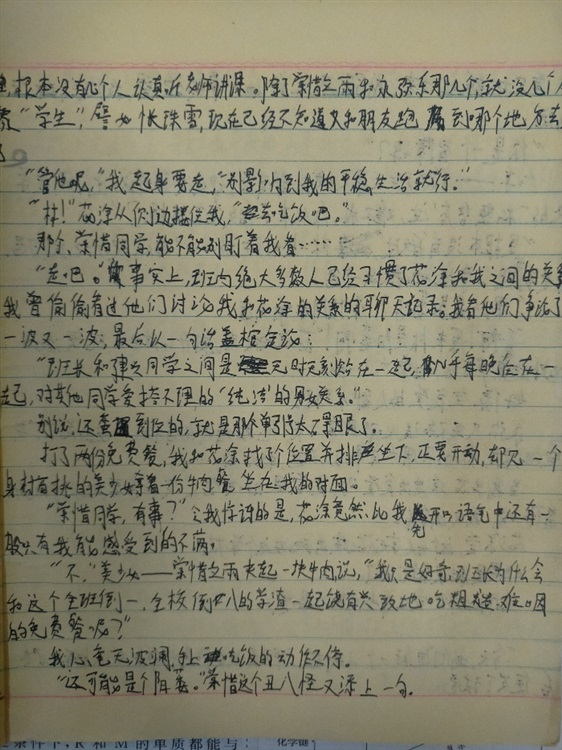 根本没有几个人认真听老师讲课。除了荣惜之雨和永弥东那几个,就没几个人
"学生",譬如张珠雪,现在已经不知道又和朋友跑到哪个地方去
了
"管他呢,"我起身要走,"别影响到我的平稳生活就行。"
"梓!"花涂从侧边搂住我,"去吃饭吧。"
那个、荣惜同学,能不能别盯着我看……
"走吧。"事实上,班内绝大多数人已经习惯了花涂和我之间的关系
我曾偷偷看过他们讨论我和花涂的关系的聊天记录。我看他们争论了
一波又一波,最后以一句话盖棺定论:
"班长和同学之间是无时无刻粘在一起,几乎每晚住在一
起,对其他同学爱搭不理的'纯洁'的男女关系。"
别说,还蛮到位的,就是那个单引号太碍眼了。
打了两份免费餐,我和花涂找了个位置并排坐下,正要开动,却见一个
身材高挑的美少女拿着一份牛肉餐坐在我的对面。
"荣惜同学,有事?"令我惊讶的是,花涂竟然比我先开口,语气中还有一
股只有我能感受到的不满。
"不,"美少女——荣惜之雨夹起一块牛肉说,"我只是好奇,班长为什么会
和这个全班倒一,全校倒八的学渣一起饶有兴致地吃粗糙难咽
的免费餐呢?"
我心毫无波澜,手上吃饭的动作不停。
"还可能是个阳萎。"荣惜这个丑八怪又添上一句。
条件下,R 和 M 的单质都能与
化学键